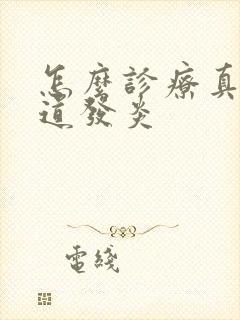 怎麼診療真
道發炎
電綫